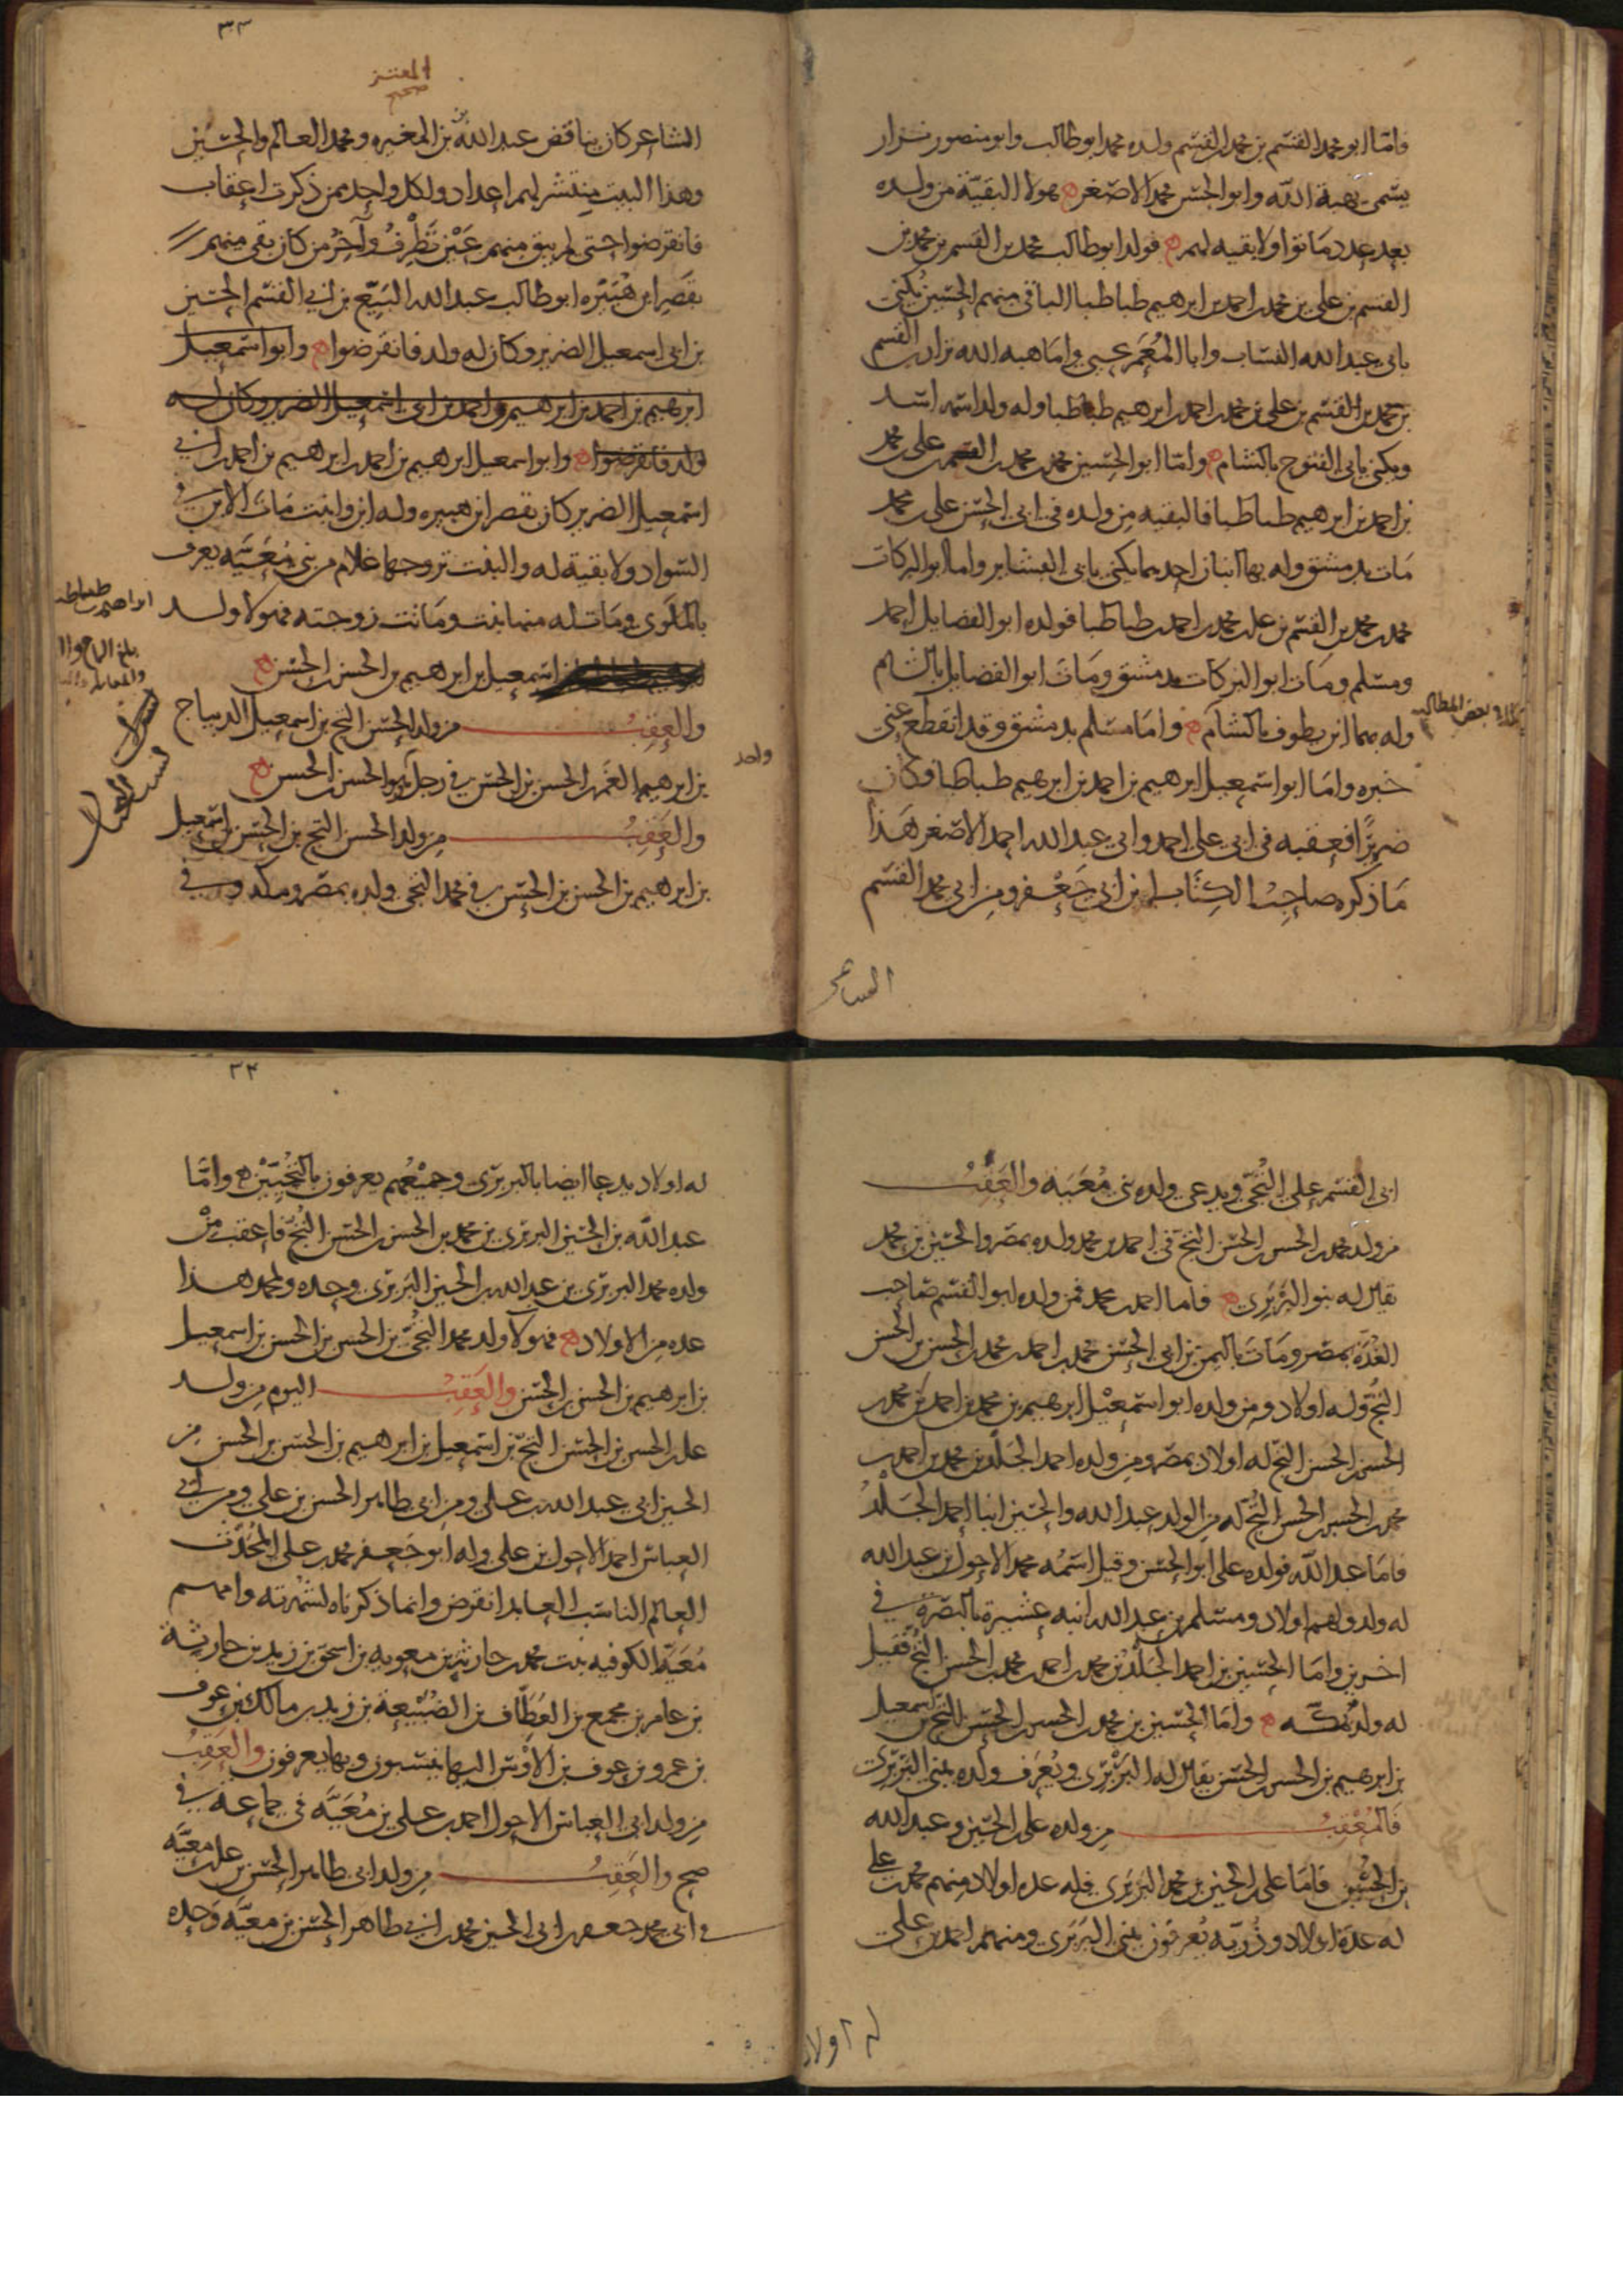 فاما ابو محمد القسم بن محمد بن القسم ولده محمد ابو طالب وابو منصور نزار
يسمى هبة الله وابو الحسن محمد الاصغر هولا البقية من ولده
بعد عدد ماتوا ولا بقيه لهم فولد ابو طالب محمد بن القسم بن محمد بن
القسم بن علي بن محمد بن احمد بن ابرهيم طباطبا الباقي منهم الحسين يكنى
بابي عبد الله النساب وابا المعمر يحيى واما هبه الله نزار بن القسم
بن محمد بن القسم بن علي بن محمد بن احمد بن ابرهيم طباطبا وله ولد اسمه اسد
ويكنى بابي الفتوح بالشام واما ابو الحسين محمد بن محمد بن القسم بن علي بن محمد
بن احمد بن ابرهيم طباطبا فالبقيه من ولده في ابي الحسن علي بن محمد
مات بدمشق وله بها ابنان احدهما يكنى بابي العشاير واما ابو البركات
محمد بن محمد بن القسم بن علي بن محمد بن احمد بن طباطبا فولده ابو الفضايل احمد
ومسلم ومات ابو البركات بدمشق ومات ابو الفضايل بالشام
وله بها ابن يطوف بالشام واما مسلم بدمشق وقد انقطع عني
خبره واما ابو اسمعيل ابرهيم بن احمد بن ابرهيم طباطبا وكان
ضريرا فعقبه في ابي علي احمد وابي عبد الله احمد الاصغر هذا
ما ذكره صاحب الكتاب ابن ابي جعفر ومن ابي محمد القسم
الشاعر
٣٣
المعتز
صحيح
الشاعر كان يناقض عبد الله بن المغيره ومحمد العالم والحسين
وهذا البيت ينتشر لهم اعداد ولكل واحد ممن ذكرت اعقاب
فانقرضوا حتى لم يبق منهم عين تطرف وآخر من كان بقي منهم
بقصر ابن هبيره ابو طالب عبد الله البيع بن ابي القسم الحسين
بن ابي اسمعيل الضرير وكان له ولد فانقرضوا وابو اسمعيل
ابرهيم بن احمد بن ابرهيم واحمد بن ابي اسمعيل الضرير وكان له
ولد فانقرضوا وابو اسمعيل ابرهيم بن احمد بن ابرهيم بن احمد بن ابي
اسمعيل الضرير كان بقصر ابن هبيره وله ابن وابنت مات الابن في
السواد ولا بقية له والبنت تزوجها غلام من بني معيه يعرف
ومات له منها بنت وماتت زوجته فهولا ولد
اسمعيل بن ابرهيم بن الحسن بن الحسن
والعقب من ولد الحسن التج بن اسمعيل الديباج
بن ابرهيم الغمر بن الحسن بن الحسن في رجل واحد هو الحسن بن الحسن
والعقب من ولد الحسن التج بن الحسن بن اسمعيل
بن ابرهيم بن الحسن بن الحسن في محمد التجي ولده بمصر ومكه وفي
ابي القسم علي التجي ويدعى ولده بني معيه والعقب
من ولد محمد بن الحسن بن الحسن التج في احمد بن محمد ولده بمصر والحسين بن محمد
يقال له بنو البربري فاما احمد بن محمد فمن ولده ابو القسم صاحب
الغدة بمصر ومات باليمن بن ابي الحسن محمد بن احمد بن محمد بن الحسن بن الحسن
التج وله اولاد ومن ولده ابو اسمعيل ابرهيم بن محمد بن احمد بن محمد بن
الحسن بن الحسن التج له اولاد بمصر ومن ولده احمد الجلد بن محمد بن احمد بن
محمد بن الحسن بن الحسن التج له من الولد عبد الله والحسين ابنا احمد الجلد
فاما عبد الله فولده علي ابو الحسن وقيل اسمه محمد الاحول بن عبد الله
له ولد ولهم اولاد ومسلم بن عبد الله ابنه عشيرة بالبصرة في
اخرين واما الحسين بن احمد الجلد بن محمد بن احمد بن محمد بن الحسن التج فقيل
له ولد بمكه واما الحسين بن محمد بن الحسن بن الحسن التج بن اسمعيل
بن ابرهيم بن الحسن بن الحسن يقال له البربري ويعرف ولده ببني البربري
فالمعقب من ولده علي بن الحسين وعبد الله
بن الحسين فاما علي بن الحسين بن محمد البربري فله عده اولاد منهم محمد بن علي
له عدة اولاد وذرية يعرفون ببني البربري ومنهم احمد بن علي
له اولاد
٣٤
له اولاد يدعا ايضا بالبربري وجميعهم يعرفون بالتجيين واما
عبد الله بن الحسين البربري بن محمد بن الحسن بن الحسن التج فاعقب من
ولده محمد البربري بن عبد الله بن الحسين البربري وحده ولمحمد هذا
عده من الاولاد فهولا ولد محمد التج بن الحسن بن الحسن بن اسمعيل
بن ابرهيم بن الحسن بن الحسن والعقب اليوم من ولد
علي بن الحسن بن الحسن التج بن اسمعيل بن ابرهيم بن الحسن بن الحسن من
الحسين ابي عبد الله بن علي ومن ابي طاهر الحسن بن علي ومن ابي
العباس احمد الاحول بن علي وله ابو جعفر محمد بن علي المحدث
العالم الناسب العابد انقرض وانما ذكرناه لشهرته وامهم
معيه الكوفيه بنت محمد بن حارثه بن معويه بن اسحق بن زيد بن حارثة
بن عامر بن مجمع بن العطاف بن الضبيعة بن زيد بن مالك بن عوف
بن عمرو بن عوف بن الاوس اليها ينتسبون وبها يعرفون والعقب
من ولد ابي العباس الاحول احمد بن علي بن معيه في جماعة في
صح والعقب من ولد ابي طاهر الحسن بن علي بن معيه
في ابي محمد جعفر بن ابي الحسين محمد بن ابي طاهر الحسن بن معيه وحده